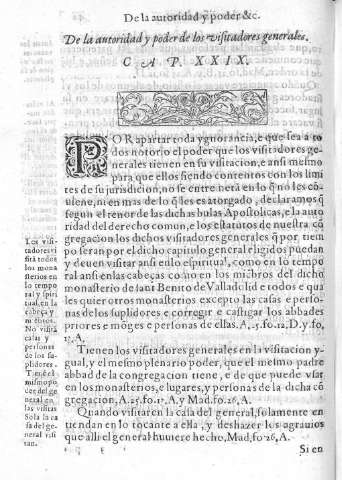 De la autoridad y poder &c.
De la autoridad y poder de los visitadores generales.
CAP. XXIX.
POR apartar toda ygnorancia, e que sea a to
dos notorio el poder que los visitadores ge-
nerales tienen en su visitacion, e ansi mesmo
para que ellos siendo contentos con los limi
tes de su jurisdicion, no se entremetā en lo q̄ no les cō-
uiene, ni en mas de lo q̄ les es atorgado, declaramos q̄
segun el tenor de las dichas bulas Apostolicas, e la auto
ridad del derecho comun, e los estatutos de nuestra cō
gregacion los dichos visitadores generales q̄ por tiem
po seran por el dicho capitulo general eligidos puedan
y deuen visitar ansi enlo espiritual, como en lo tempo
ral ansi en las cabeças como en los miēbros del dicho
monasterio de sant Benito de Valladolid e todos e qua
les quier otros monasterios excepto las casas e perso-
nas de los suplidores e corregir e castigar los abbades
priores e mōges e personas de ellas. A, 25. fo. 12, D. y fo,
17, A.
Tienen los visitadores generales en la visitacion y-
gual, y el mismo plenario poder, que el mismo padre
abbad de la congregacion tiene, e de que puede vsar
en los monasterios, e lugares, y personas de la dicha cō
gregacion, A. 25. fo. 17. A, y Mad. fo. 26, A.
Quando visitaren la casa del general, solamente en
tiendan en lo tocante a ella, y deshazer los agrauios
que alli el general huuiere hecho, Mad, fo. 26, A.
Si en
Los visi
tadores vi
sitā todos
los mona
sterios en
lo tempo
ral y spiri
tual, en la
cabeça y
miēbros.
No visitā
casas y
personas
de los su-
plidores.
Tienē el
mismo po
der del ge
neral en
las visitas
Sola la ca
sa del ge-
neral visi
tan.